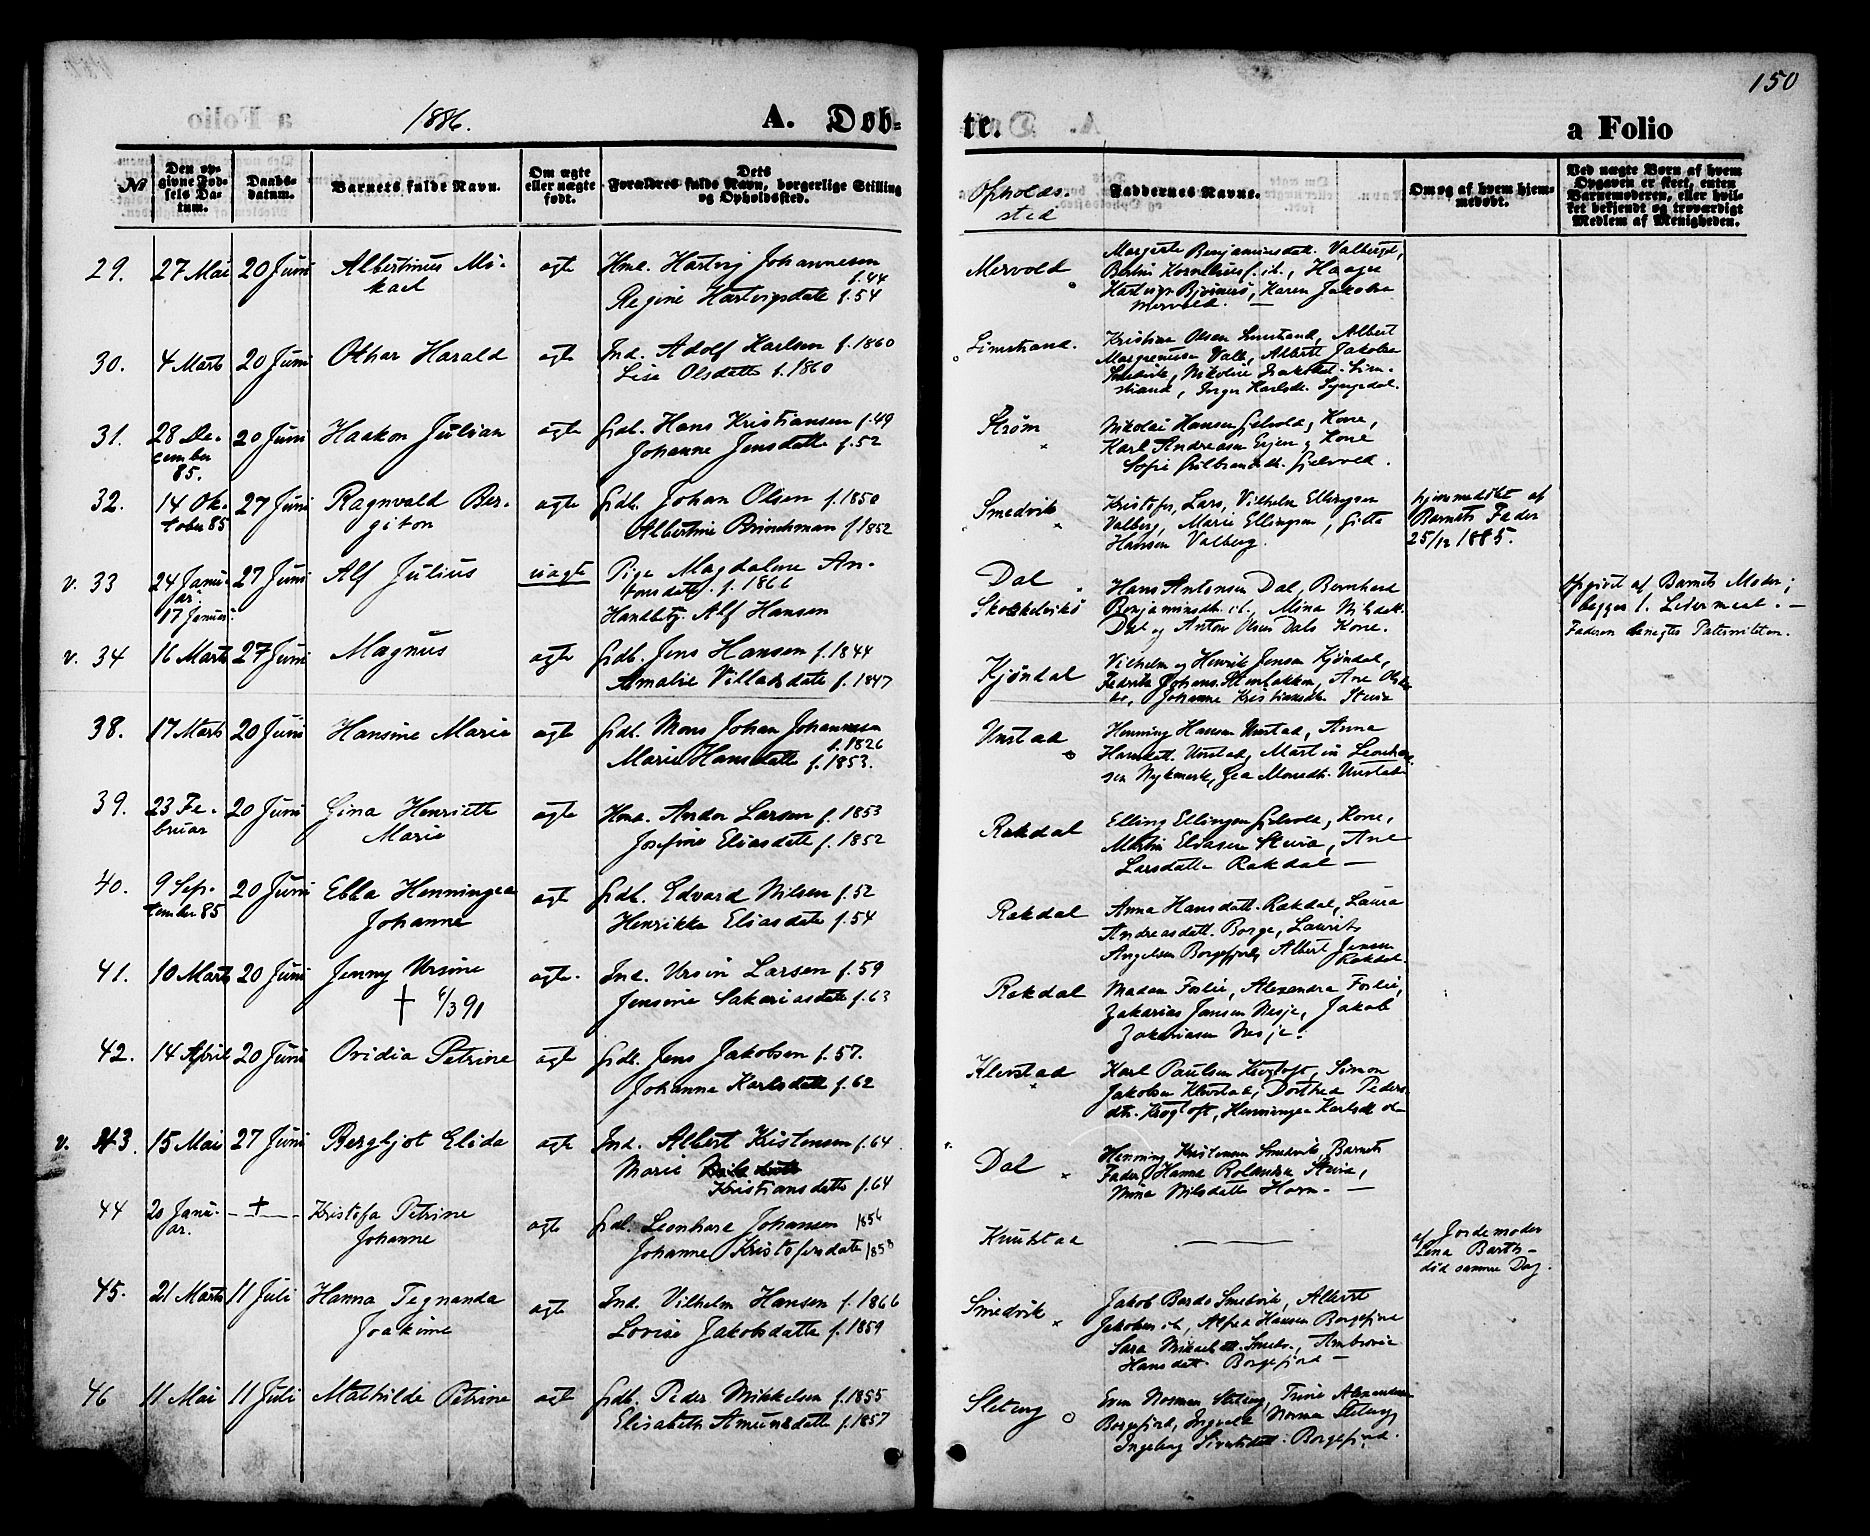 150
1886.
A. Døb-
te.
a Folio
No
Den op-
givne Fød-
sels Da-
tum.
Daabs-
datum.
Barnets fulde Navn.
Om ægte
eller uægte
født.
Dets
Forældres fulde Navn, borgerlige Stilling
og Opholdssted.
Opholds-
sted
Faddernes Navne.
Om og af hvem hjem-
medøbt.
Ved uægte Børn af hvem
Opgaven er skeet, enten
Barnemoderen, eller hvil-
ket bekjendt og troværdigt
Medlem af Menigheden.
29. 27 Mai 20 Juni Albertinus Mi-
kael
ægte Hmd. Hartvig Johannesen
f. 44
Regine Hartvigsdatt f. 54
Mervold
Margrete Benjaminsdatt. Valberg,
Hartvigs Karen Jakobs
Mervold.
30. 4 Marts 20 Juni Othar Harald
ægte Ind. Adolf Karlsen f. 1860
Lise Olsdatt f. 1860
Limstrand.
Kristian Olsen Limstrand, Albert
Valb, Albert Jakobs
Smedvik, Nikoline Lim-
strand, Karlsd.
31. 28 De-
cember
85.
20 Juni Haakon Julian
ægte Gdb. Hans Kristiansen f. 49
Johanne Jensdatt f. 52
Strøm
Nikolai Hansen Kone,
Karl Andreasen og Kone
Sofie
32. 14 Ok-
tober 85
27 Juni Ragnvald Ber-
giton
ægte Gdb. Johan Olsen f. 1850
Albertine Brinchmann f 1852
Smedvik
Kristofer, Lars, Vilhelm Ellingsen
Valberg, Marie Ellingsen, Gitta
Hansen Valberg.
hjemmedøbt af
Barnets Fader
25/12 1885.
v. 33 24 Janu-
ar.
17 Januar.
27 Juni Alf Julius
uægte Pige Magdalene An-
tonsdatt. f. 1866
Handelsbtj. Alf Hansen
Dal
Hans Antonsen Dal, Bernhard
Benjaminsdt. ib., Mina Nilsdatt.
Dal og Anton Olsen Dals Kone.
opgivet af Barnets Moder;
begges 1. Leiermaal. —
Faderen benegter Paterniteten.
v. 34 16 Marts 27 Juni Magnus
ægte Gdb. Jens Hansen f. 1844
Amalie Villadsdatt f. 1847
Kjøndal
Vilhelm og Henrik Jensen Kjøndal,
Fedrik Johans. Ane
Johanne Kristiansdt. Steira
38. 17 Marts 20 Juni Hansine Marie
ægte Gdb. Mons Johan Johannesen
f. 1826
Marie Hansdatt f. 1853.
Unstad
Henning Hansen Unstad, Anna
Hansdatt. Unstad, Martin
sen Nykmark, Gea Monsdt. Unstad
39. 23 Fe-
bruar
20 Juni Gina Henriette
Marie
ægte Hmd. Andor Larsen f. 1853
Josefine Eliasdatt f. 1852
Rakdal
Elling Ellingsen Kone,
Martin Steira, Ane
Larsdatte Rakdal —
40. 9 Sep-
tember 85
20 Juni Ebba Henningea
Johanne
ægte Gdb. Edvard Nilsen f. 52
Henrikke Eliasdatt f. 54
Rakdal
Anna Hansdatt. Rakdal, Laura
Andreasdatt. Borge, Laurits
Angelsen Borgefjord, Albert Jensen
Rakdal.
41. 10 Marts 20 Juni Jenny Ursine
† 6/3 91
ægte. Ind. Ursin Larsen f. 59
Jensine Sakariasdatt f. 63
Rakdal
Madam Forlie, Alexandra Forlie,
Zakarias Jansen Nesje, Jakob
Zakariasen Nesje.
42. 14 April 20 Juni Ovidia Petrine
ægte Gdb. Jens Jakobsen f. 57.
Johanna Karlsdatt f. 62
Klevstad
Karl Paulsen Krogtoft, Simon
Jakobsen Klevstad, Dorthea Peders-
dtr. Krogtoft, Henningea Karlsdt
v. 43. 15 Mai 27 Juni Bergljot Elida
ægte Ind. Albert Kristensen f. 64
Marie
Kristiansdatt f. 64
Dal
Henning Kristensen Smedvik, Barnets
Fader, Hanna Steira,
Mina Nilsdatte Horn. —
44 20 Janu-
ar.
— † — Kristofa Petrine
Johanne
ægte Gdb. Leonhard Johansen 1856
Johanne Kristofersdatt 1853
Knutstad
—
af Jordemoder
Lina Barth -
død samme Dag.
45. 21 Marts 11 Juli Hanna Tegnanda
Joakime
ægte Ind. Vilhelm Hansen f. 1866
Lovise Jakobsdatte f. 1859
Smedvik
Jakob Smedvik, Albert
Jakobsen ib, Alfred Hansen Borgefjord
Sara Mikaelsdtt. Smedv.,
Hansdatt. Borgefjord —
46 11 Mai 11 Juli Mathilde Petrine
ægte Gdb. Peder Mikkelsen f. 1855
Elisabeth Amundsdatt f. 1857
Sleteng
Even Norman Sleteng, Trine
Borgefjord, Ingvald Norman Sleteng
Ingeborg Sivertsdatt. Borgefjord.